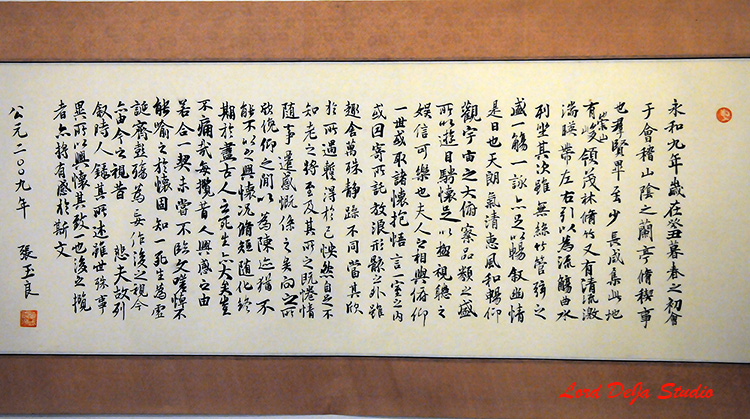 永和九年歲在癸丑暮春之初會
于會稽山陰之蘭亭脩稧事
也羣賢畢至少長咸集此地
有崇山峻領茂林脩竹又有清流激
湍暎帶左右引以為流觴曲水
列坐其次雖無絲竹管弦之
盛一觴一詠亦足以暢叙幽情
是日也天朗氣清惠風和暢仰
觀宇宙之大俯察品類之盛
所以遊目騁懷足以極視聽之
娛信可樂也夫人之相與俯仰
一世或取諸懷抱悟言一室之內
或因寄所託放浪形骸之外雖
趣舍萬殊靜躁不同當其欣
於所遇暫得於己怏然自足不
知老之將至及其所之既惓情
隨事遷感慨係之矣向之所
欣俛仰之間以為陳迹猶不
能不以之興懷況脩短隨化終
期於盡古人云死生亦大矣豈
不痛哉每攬昔人興感之由
若合一契未嘗不臨文嗟悼不
能喻之於懷固知一死生為虛
誕齊彭殤為妄作後之視今
亦由今之視昔 悲夫故列
叙時人錄其所述雖世殊事
異所以興懷其致一也後之攬
者亦將有感於斯文
公元二〇〇九年 張玉良
Lord DeJa Studio